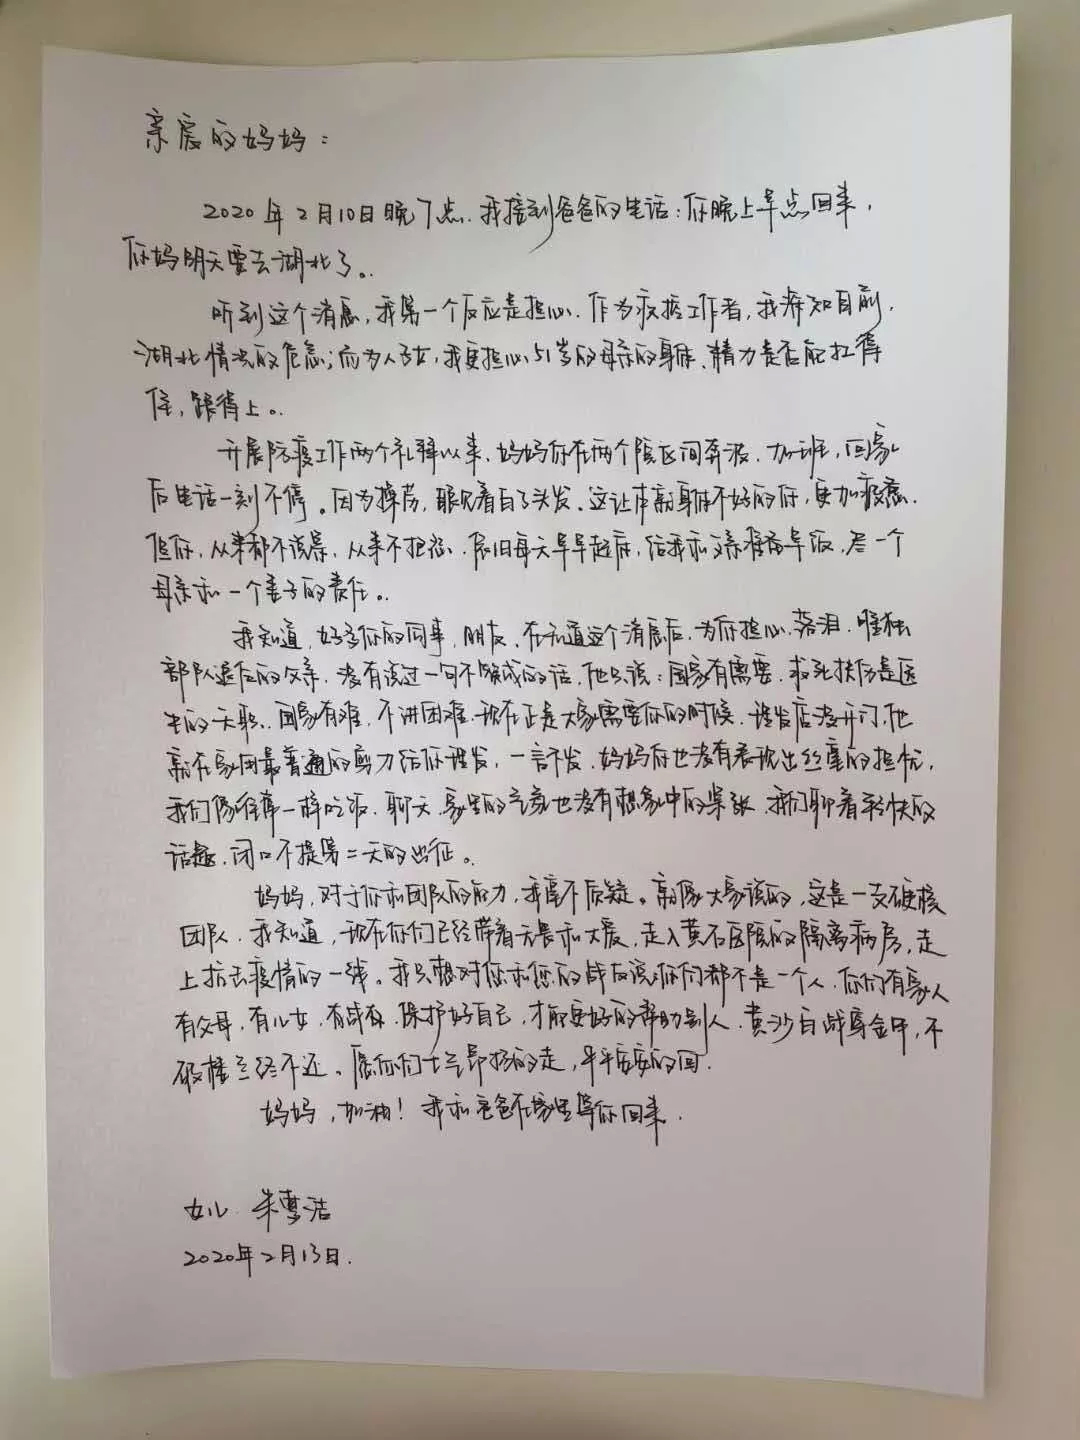 亲爱的妈妈：
2020年2月10日晚7点，我接到爸爸的电话：你晚上早点回来，
你妈明天要去湖北了。
听到这个消息，我第一个反应是担心。作为疾控工作者，我深知目前
湖北情况的危急；而为人子女，我更担心51岁的母亲的身体、精力是否能扛得
住，跟得上。
开展防疫工作两个礼拜以来，妈妈你在两个院区间奔波、加班，回家
后电话一刻不停。因为操劳，眼见着白了头发。这让本就身体不好的你，更加疲惫。
但你，从来都不说累，从来不抱怨。依旧每天早早起床，给我和父亲准备早饭，尽一个
母亲和一个妻子的责任。
我知道，好多你的同事、朋友，在知道这个消息后，为你担心、落泪。唯独
部队退伍的父亲，没有说过一句不赞成的话，他只说：国家有需要，救死扶伤是医
生的天职。国家有难，不讲困难。现在正是大家需要你的时候。理发店没开门，他
就在家用最普通的剪刀给你理发，一言不发。妈妈你也没有表现出丝毫的担忧，
我们像往常一样吃饭、聊天，家里的气氛也没有想象中的紧张，我们聊着轻快的
话题，闭口不提第二天的出征。
妈妈，对于你和团队的能力，我毫不质疑。就像大家说的，这是一支硬核
团队，我知道，现在你们已经带着无畏和大爱，走入黄石医院的隔离病房，走
上抗击疫情的一线。我只想对您和您的战友说：你们都不是一个人，你们有家人
有父母，有儿女，有战友，保护好自己，才能更好的帮助别人。黄沙百战穿金甲，不
破楼兰终不还。愿你们士气昂扬的走，平平安安的回。
妈妈，加油！我和爸爸在家里等你回来。
女儿 朱慧洁
2020年2月13日.